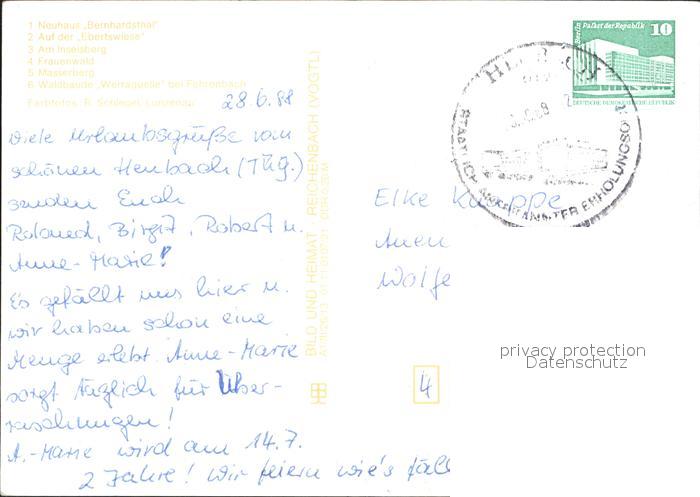 1 Neuhaus „Bernhardsthal"
2 Auf der „Ebertswiese"
3 Am Inselsberg
4 Frauenwald
5 Masserberg
6 Waldbaude „Werraquelle" bei Fehrenbach
Farbfotos: R. Schlegel, Lunzenau
28.6.88
Viele Urlaubsgrüße vom
schönen Heubach (Thg.)
senden Euch
Roland, Birgit, Robert u.
Anne-Marie!
Es gefällt uns hier u.
wir haben schon eine
Menge erlebt. Anne-Marie
sorgt täglich für Über-
raschungen!
A.-Marie wird am 14.7.
2 Jahre! Wir feiern wie's fäll
BILD UND HEIMAT REICHENBACH (VOGTL)
Berlin, Palast der Republik
10
DEUTSCHE DEMOKRATISCHE REPUBLIK
STAATLICH ANERKANNTER ERHOLUNGSO
Elke
Auen
Wolfe
4
privacy protection
Datenschutz